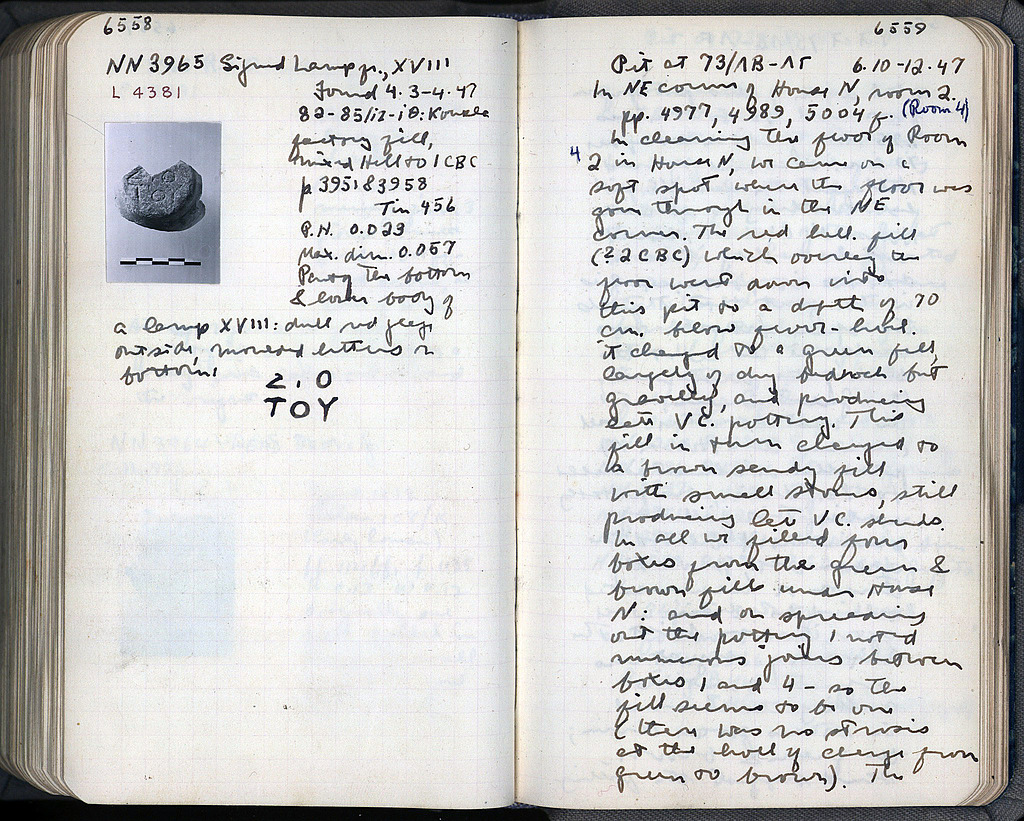 6558
NN 3965 Signed Lamp fr., XVIII
L 4381
Found 4.3-4.47
82-85/ΙΖ-ΙΘ: Komela
factory fill,
mixed Hell to 1 C BC
p. 3951 & 3958
Tin 456
P.H. 0.023
Max. dim. 0.057
Part of the bottom
& lower body of
a lamp XVIII: dull red glaze
outside, moulded letters on
bottom:
Ζ . Ο
ΤΟΥ
6559
Pit at 73/ΛΒ-ΛΓ 6.10-12.47
In NE corner of House N, room 2.
pp. 4977, 4989, 5004 f. (Room 4)
In cleaning the floor of Room
4 2 in House N, we came on a
soft spot where the floor was
gone through in the NE
corner. The red hell. fill
(? 2 C BC) which overlay the
floor went down into
this pit to a depth of 70
cm. below floor-level.
it changed to a green fill,
largely of dug bedrock but
gravelly, and producing
late V C. pottery. This
fill in turn changed to
a brown sandy fill
with small stones, still
producing late V C. sherds.
In all we filled four
boxes from the green &
brown fill under House
N: and on spreading
out the pottery I noted
numerous joins between
boxes 1 and 4 - so the
fill seems to be one
(there was no strosis
at the level of change from
green to brown). The